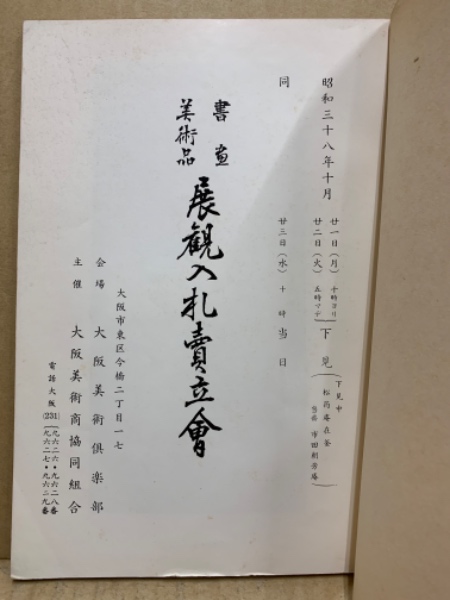 昭和三十八年十月
廿一日（月）十時ヨリ
廿二日（火）五時マデ
下見
下見中
松筠庵在釜
当番 市田朝芳庵
同
廿三日（水）十時
当日
書画
美術品
展観入札賣立會
大阪市東区今橋二丁目一七
会場 大阪美術倶楽部
主催 大阪美術商協同組合
電話大阪(231)
九六二六・九六二八番
九六二七・九六二九番